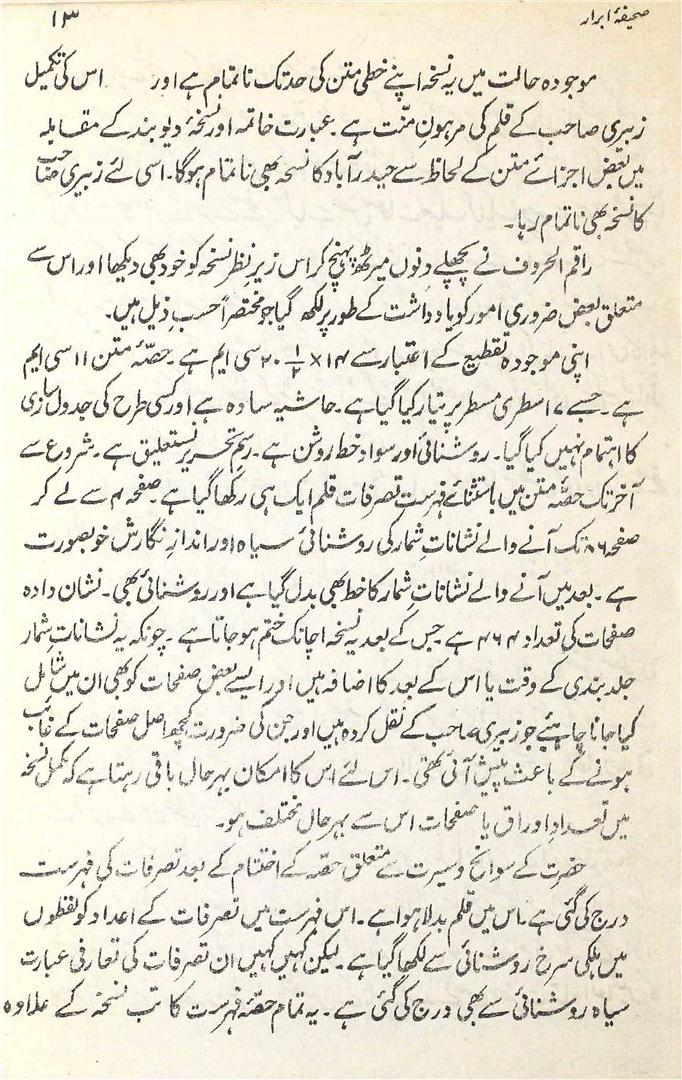 صحیفۂ ابرار
۱۳
موجودہ حالت میں یہ نسخہ اپنے خطی متن کی حد تک ناتمام ہے اور اس کی تکمیل
زبیری صاحب کے قلم کی مرہونِ منّت ہے۔ عبارت خاتمہ اور نسخۂ دیوبند کے مقابلہ
میں بعض اجزائے متن کے لحاظ سے حیدرآباد کا نسخہ بھی ناتمام ہوگا۔ اسی لئے زبیری صاحب
کا نسخہ بھی ناتمام رہا۔
راقم الحروف نے پچھلے دنوں میرٹھ پہنچ کر اس زیرِ نظر نسخہ کو خود بھی دیکھا اور اس سے
متعلق بعض ضروری امور کو یادداشت کے طور پر لکھ گیا جو مختصراً حسبِ ذیل ہیں۔
اپنی موجودہ تقطیع کے اعتبار سے ۱۴ × ۲۰ ۱/۲ سی ایم ہے۔ حصّہ متن ۱۱ سی ایم
ہے۔ جسے ۱۷ سطری مسطر پر تیار کیا گیا ہے۔ حاشیہ سادہ ہے اور کسی طرح کی جدول سازی
کا اہتمام نہیں کیا گیا۔ روشنائی اور سوادِ خط روشن ہے۔ رسمِ تحریر نستعلیق ہے۔ شروع سے
آخر تک حصّہ متن میں باستثنائے فہرست تصرفات قلم ایک ہی رکھا گیا ہے۔ صفحہ ۴ سے لے کر
صفحہ ۸۶ تک آنے والے نشاناتِ شمار کی روشنائی سیاہ اور اندازِ نگارش خوبصورت
ہے۔ بعد میں آنے والے نشاناتِ شمار کا خط بھی بدل گیا ہے اور روشنائی بھی۔ نشان دادہ
صفحات کی تعداد ۴۶۴ ہے جس کے بعد یہ نسخہ اچانک ختم ہو جاتا ہے۔ چونکہ یہ نشاناتِ شمار
جلد بندی کے وقت یا اس کے بعد کا اضافہ ہیں اور ایسے بعض صفحات کو بھی ان میں شامل
کیا جانا چاہئے جو زبیری صاحب کے نقل کردہ ہیں اور جن کی ضرورت کچھ اصل صفحات کے غائب
ہونے کے باعث پیش آئی تھی۔ اس لئے اس کا امکان بہرحال باقی رہتا ہے کہ مکمل نسخہ
میں تعدادِ اوراق یا صفحات اس سے بہرحال مختلف ہو۔
حضرت کے سوانح و سیرت سے متعلق حصّہ کے اختتام کے بعد تصرفات کی فہرست
درج کی گئی ہے۔ اس میں قلم بدلا ہوا ہے۔ اس فہرست میں تصرفات کے اعداد کو لفظوں
میں ہلکی سرخ روشنائی سے لکھا گیا ہے۔ لیکن کہیں کہیں ان تصرفات کی تعارفی عبارت
سیاہ روشنائی سے بھی درج کی گئی ہے۔ یہ تمام حصّہ فہرست کاتب نسخہ کے علاوہ